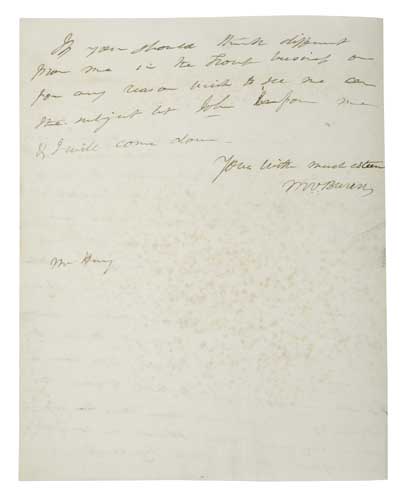 If you should think different
from me in the
for any reason wish to see me on
the subject let John inform me
& I will come down
Yours with much esteem
MVBuren
Mr